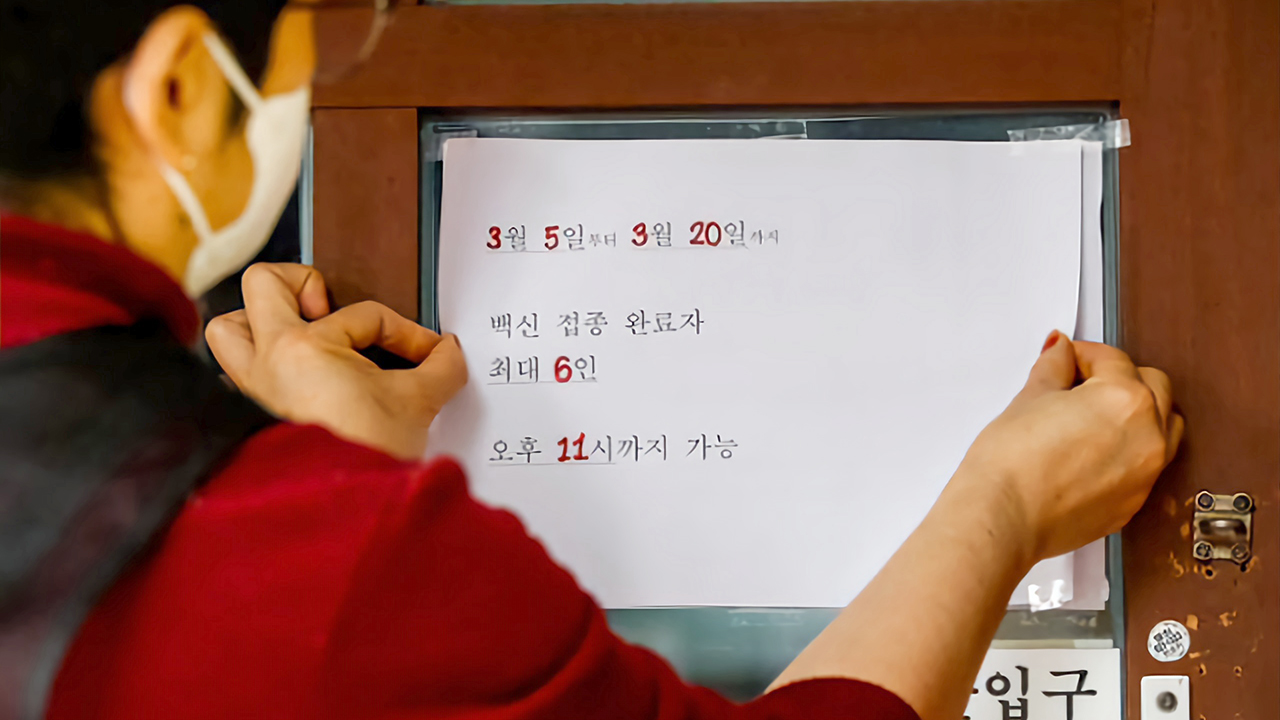 3월 5일부터 3월 20일까지
백신 접종 완료자
최대 6인
오후 11시까지 가능
입구